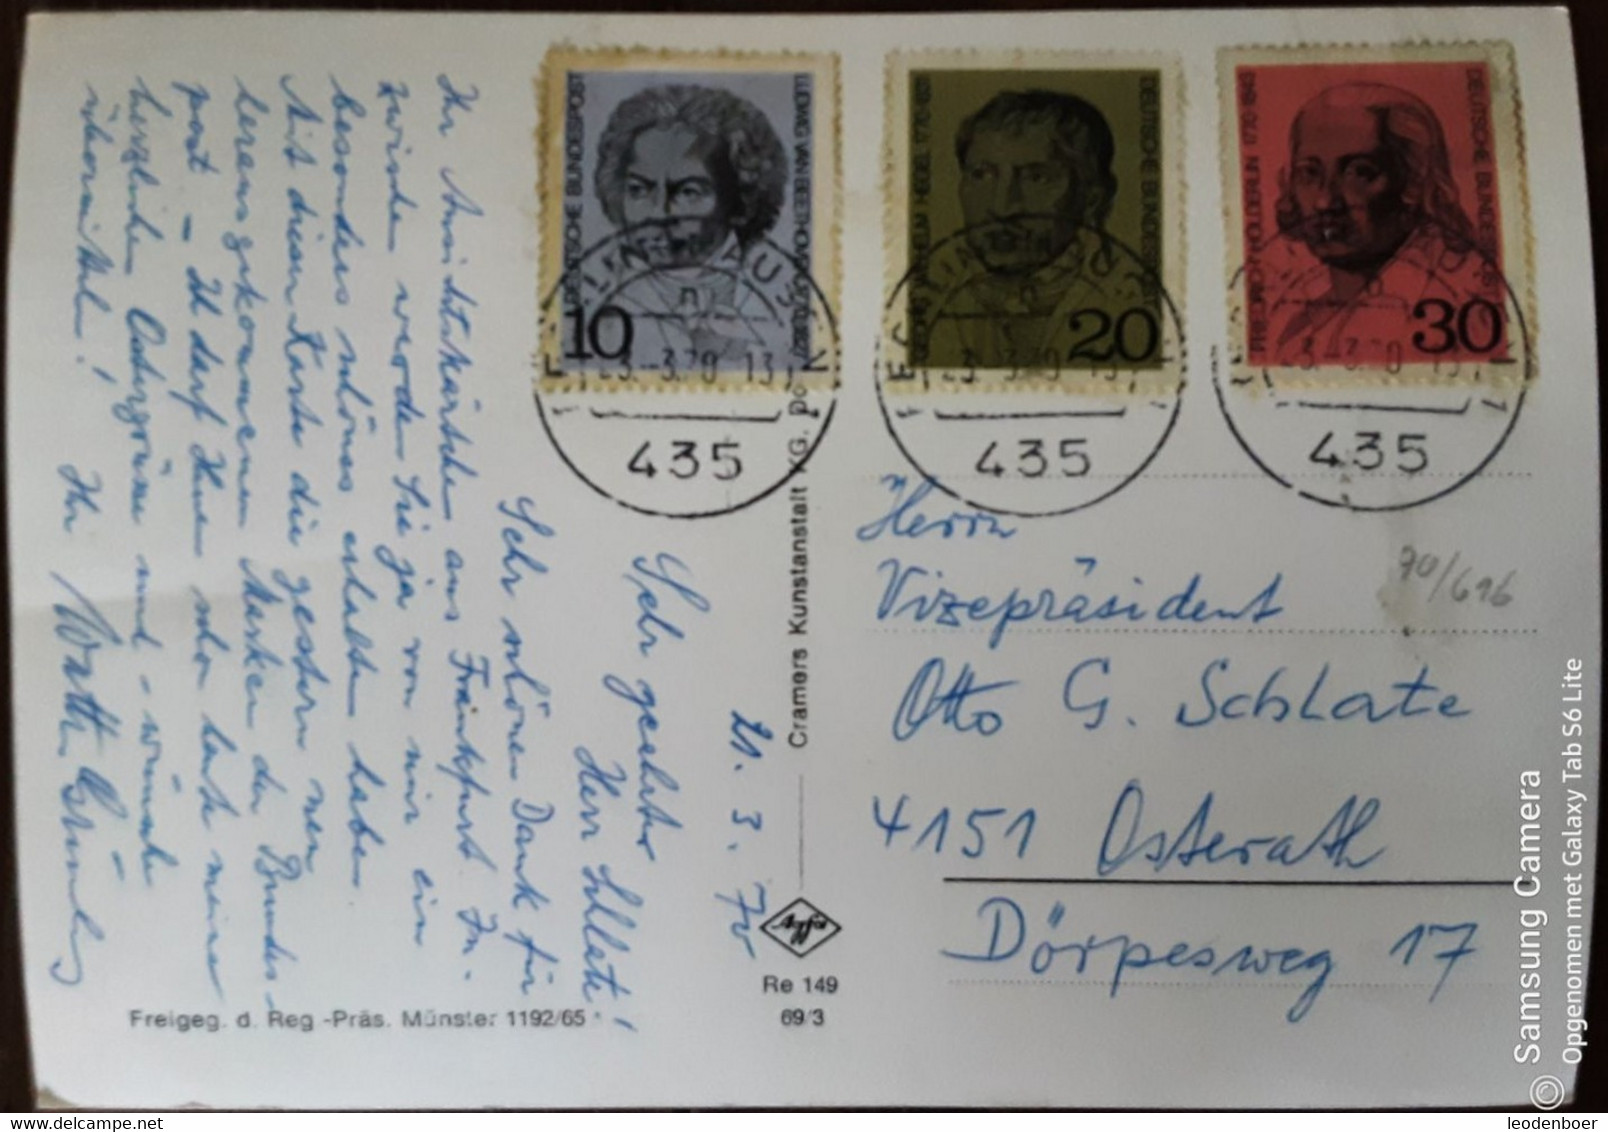 21. 3. 70
Sehr geehrter
Herr Schlate!
Sehr schönen Dank für
Ihr Ansichtskärtchen aus Frankfurt. In-
zwischen werden Sie ja von mir ein
besonders schönes erhalten haben.
Mit dieser Karte die gestern neu
herausgekommenen Marken der Bundes-
post - Ich darf Ihnen schon heute meine
herzlichen Ostergrüsse und -wünsche
übermitteln!
Ihr
DEUTSCHE BUNDESPOST
LUDWIG VAN BEETHOVEN 1770-1827
10
GEORG WILHELM HEGEL 1770-1831
DEUTSCHE BUNDESPOST
20
FRIEDRICH HÖLDERLIN 1770-1843
DEUTSCHE BUNDESPOST
30
RECKLINGHAUSEN 1
n
23.-3.70
435
RECKLINGHAUSEN 1
n
435
RECKLINGHAUSEN 1
n
435
Herrn
Vizepräsident
Otto G. Schlate
4151 Osterath
Dörpesweg 17
70/616
Cramers Kunstanstalt KG. Do
Agfa
Re 149
69/3
Freigeg. d. Reg.-Präs. Münster 1192/65
Samsung Camera
Opgenomen met Galaxy Tab S6 Lite
leodenboer